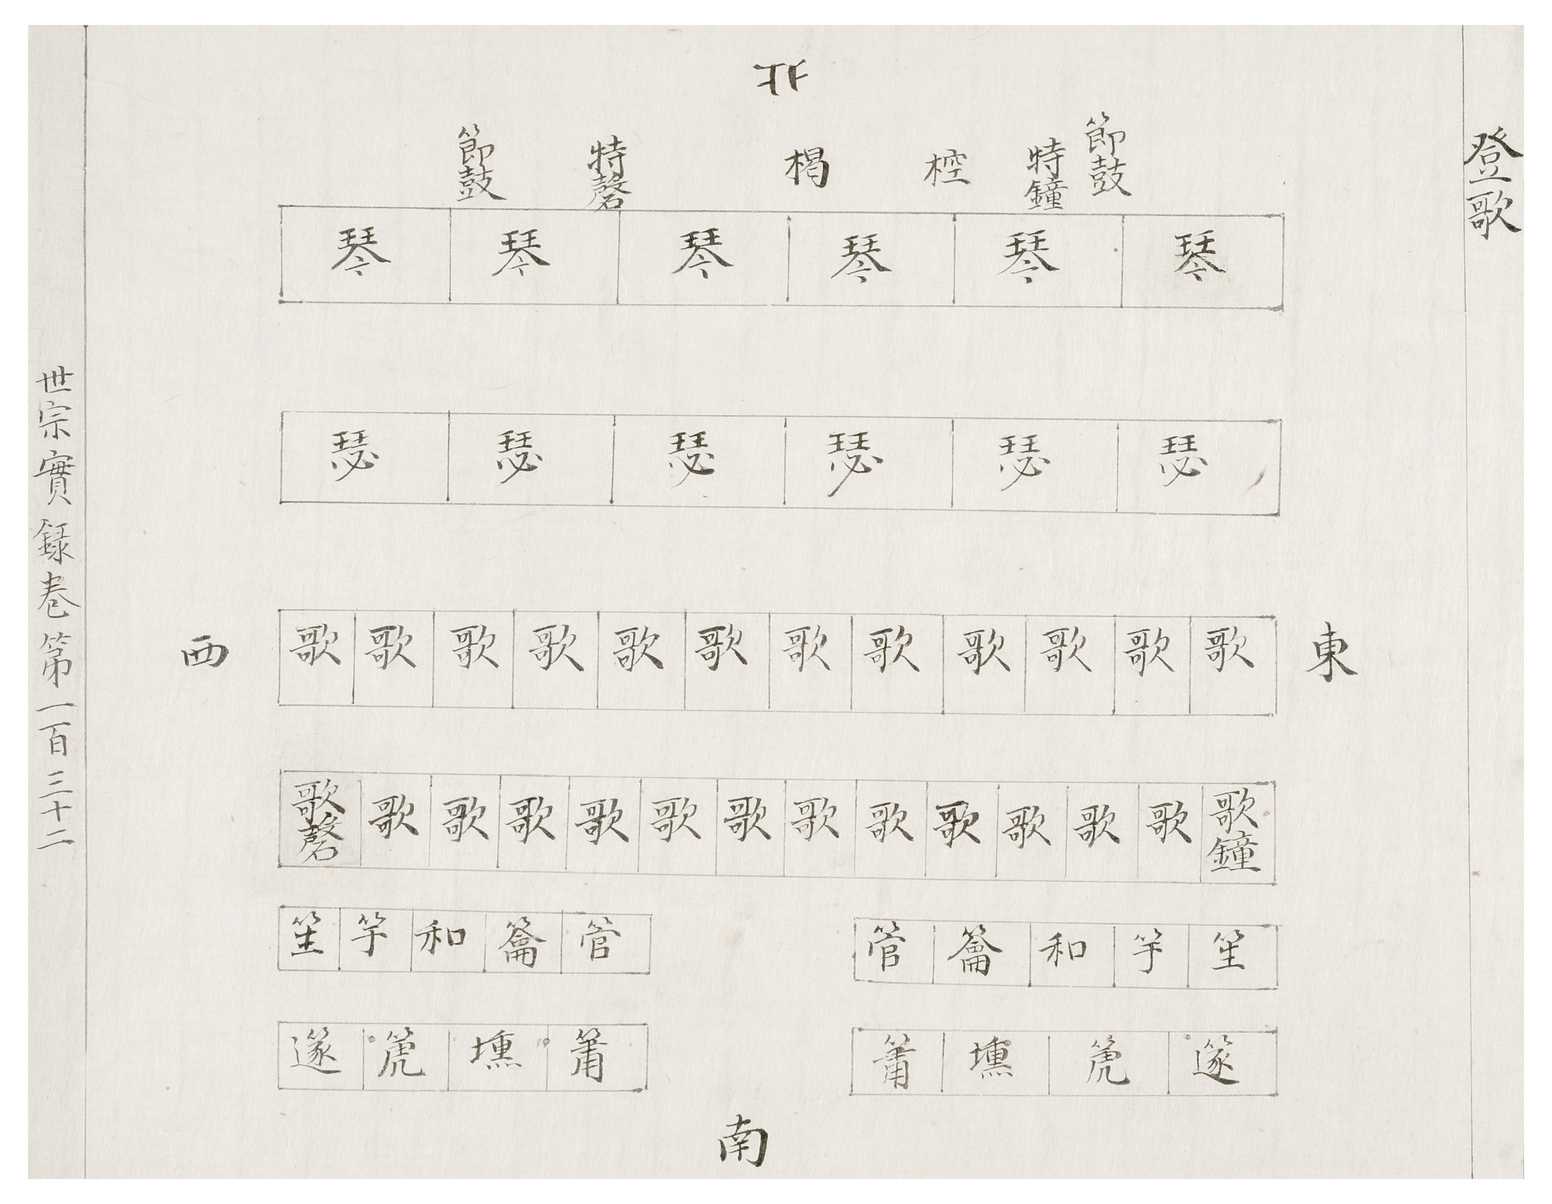 登歌
北
節鼓 特磬 楬 椌 特鐘 節鼓
琴 琴 琴 琴 琴 琴
瑟 瑟 瑟 瑟 瑟 瑟
西
歌 歌 歌 歌 歌 歌 歌 歌 歌 歌 歌 歌
東
歌磬 歌 歌 歌 歌 歌 歌 歌 歌 歌 歌 歌 歌 歌鐘
笙 竽 和 籥 管
管 籥 和 竽 笙
篴 箎 壎 簫
簫 壎 箎 篴
南
世宗實錄卷第一百三十二